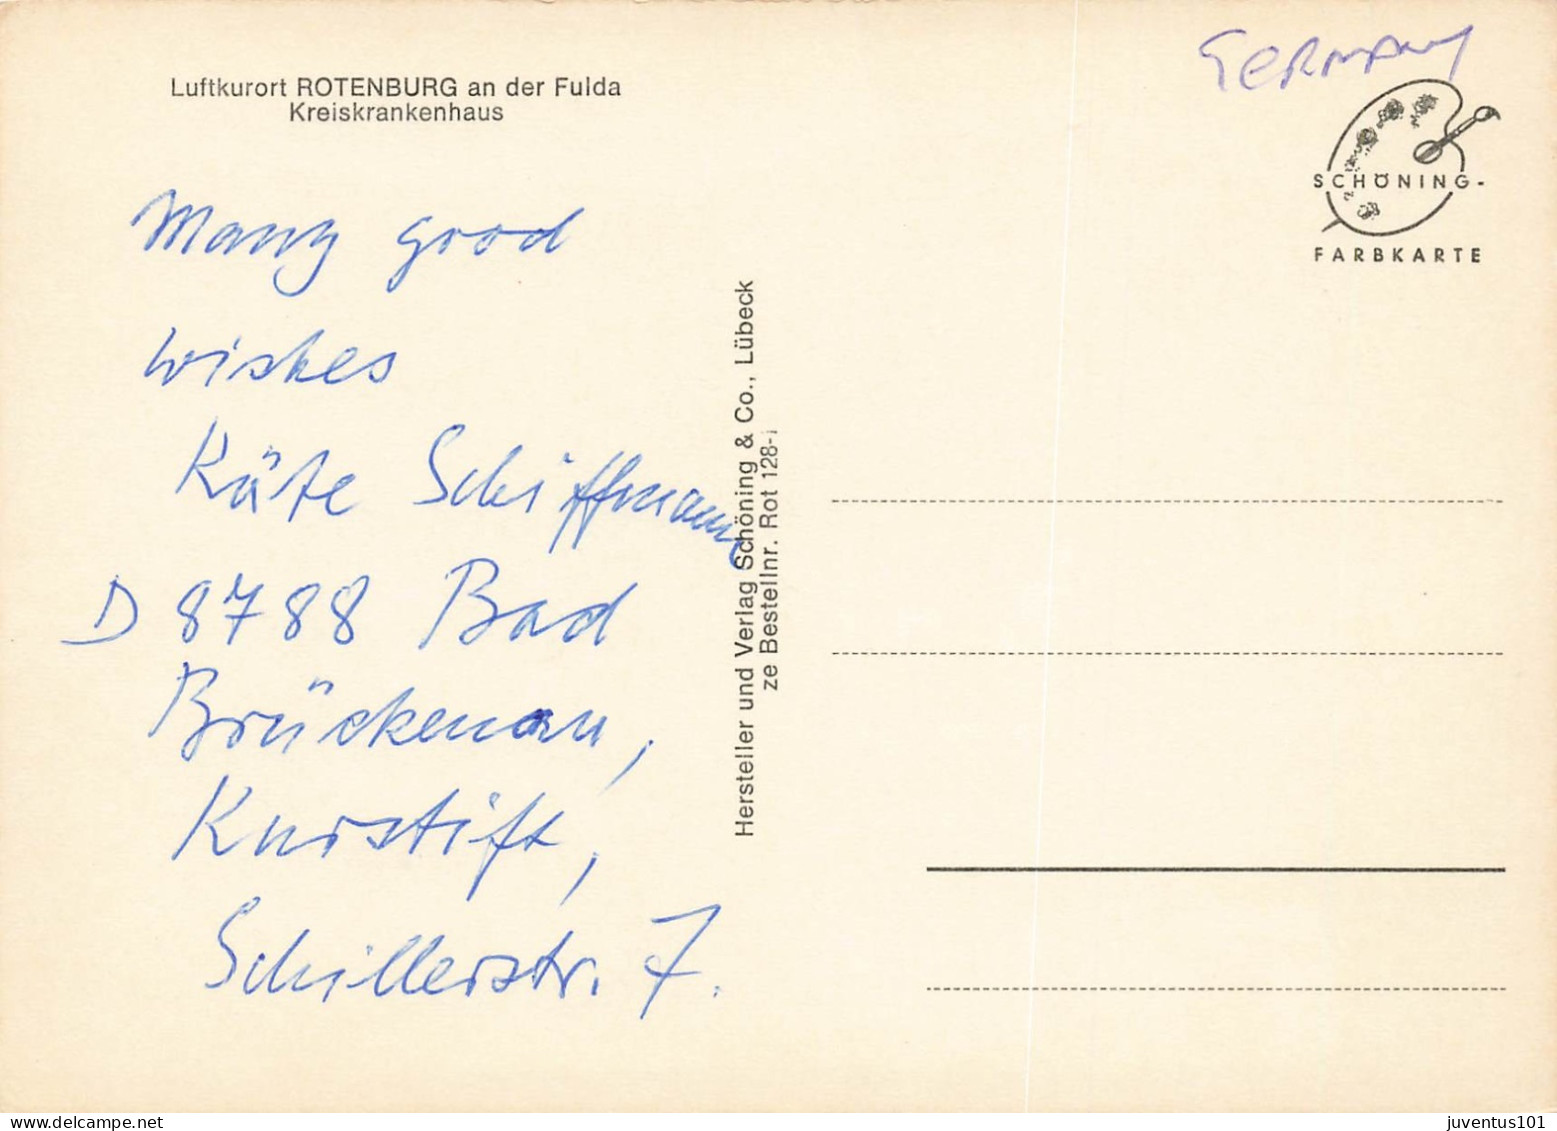 Luftkurort ROTENBURG an der Fulda
Kreiskrankenhaus
GERMANY
SCHÖNING-
FARBKARTE
Many good
wishes
Käte Schiffmann
D 8788 Bad
Brückenau,
Kurstift,
Schillerstr. 7.
Hersteller und Verlag Schöning & Co., Lübeck
ze Bestellnr. Rot 128-i
juventus101